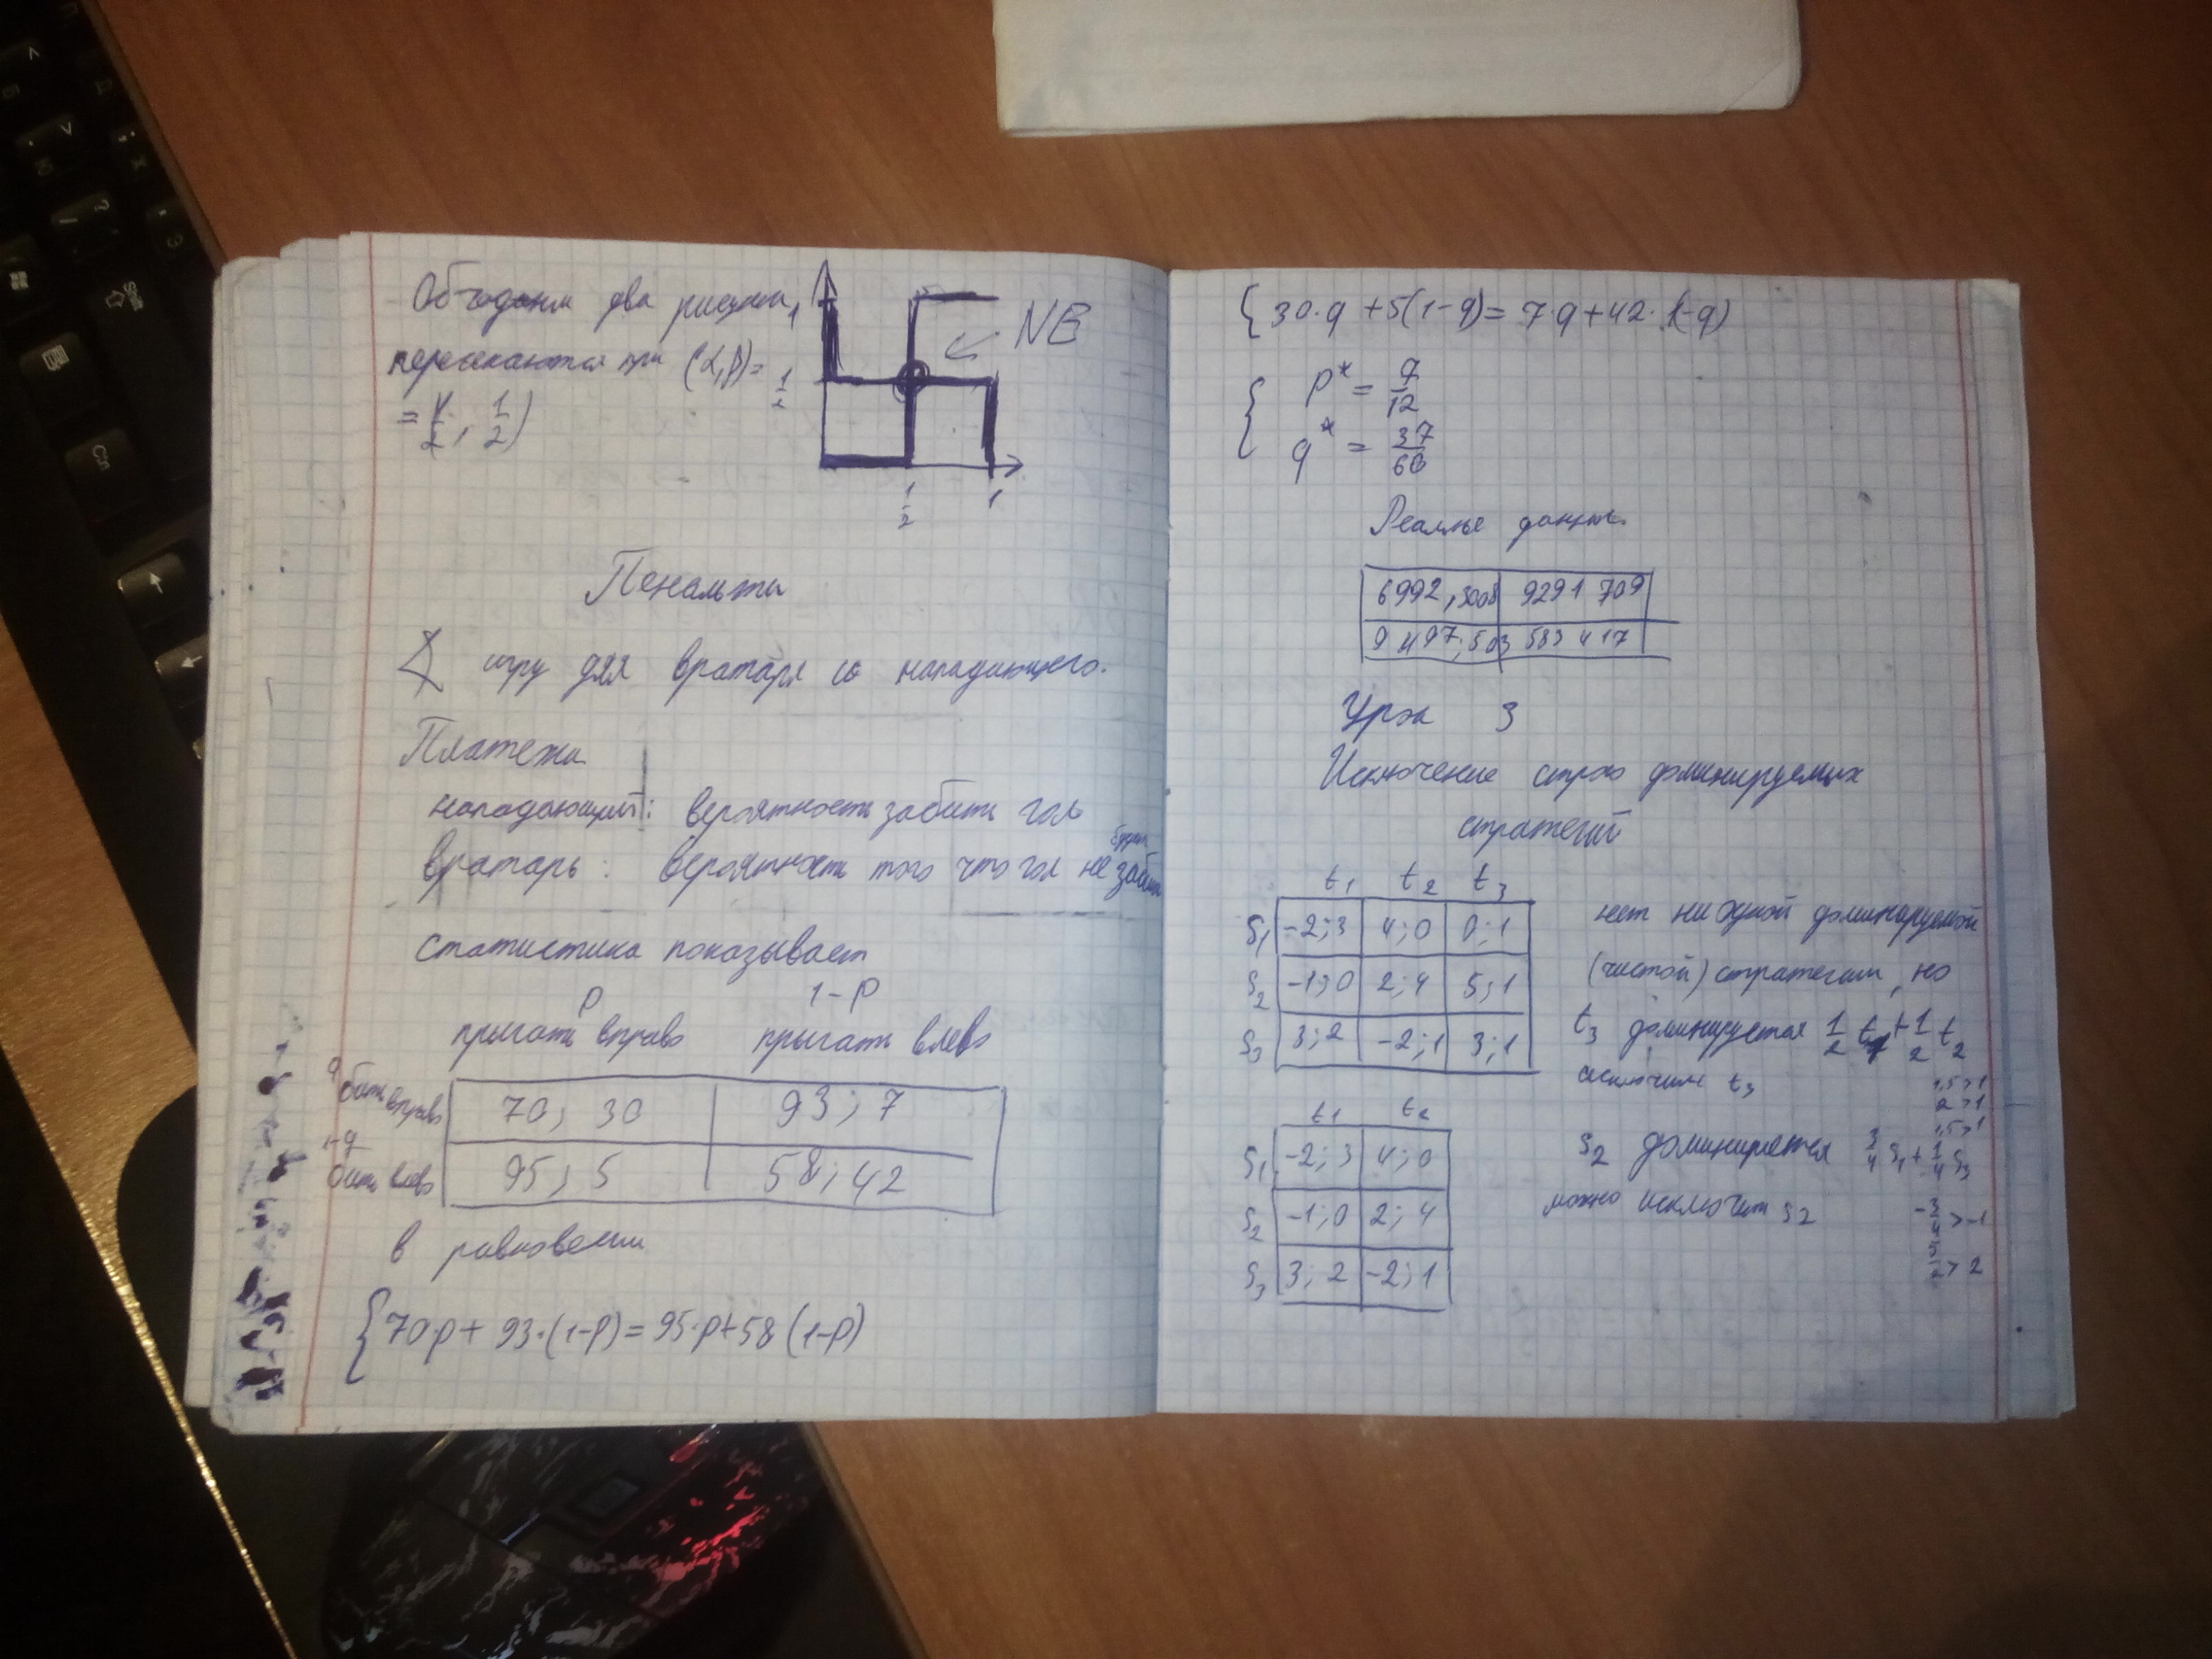 Объединим два рисунка,
пересекаются при (α,β)=
= (1/2, 1/2)
1
1/2
NE
1/2 1
Пенальти
игру для вратаря и нападающего.
Платежи
нападающий: вероятность забить гол
вратарь: вероятность того что гол не будет забит
статистика показывает
p 1-p
прыгать вправо прыгать влево
q бить вправо 70; 30 93; 7
1-q бить влево 95; 5 58; 42
в равновесии
{ 70p + 93·(1-p) = 95·p+58(1-p)
{ 30·q + 5(1-q) = 7·q+42·(1-q)
{ p* = 7/12
q* = 37/60
Реальные данные
6992,3008 9291 709
9497,503 583 417
Урок 3
Исключение строго доминируемых
стратегий
t1 t2 t3
S1 -2;3 4;0 0;1
S2 -1;0 2;4 5;1
S3 3;2 -2;1 3;1
нет ни одной доминируемой
(чистой) стратегии, но
t3 доминируется 1/2 t1+1/2 t2
исключим t3
1,5>1
2>1
1,5>1
t1 t2
S1 -2;3 4;0
S2 -1;0 2;4
S3 3;2 -2;1
S2 доминируется 3/4 S1+1/4 S3
можно исключить S2
-3/4>-1
5/2>2